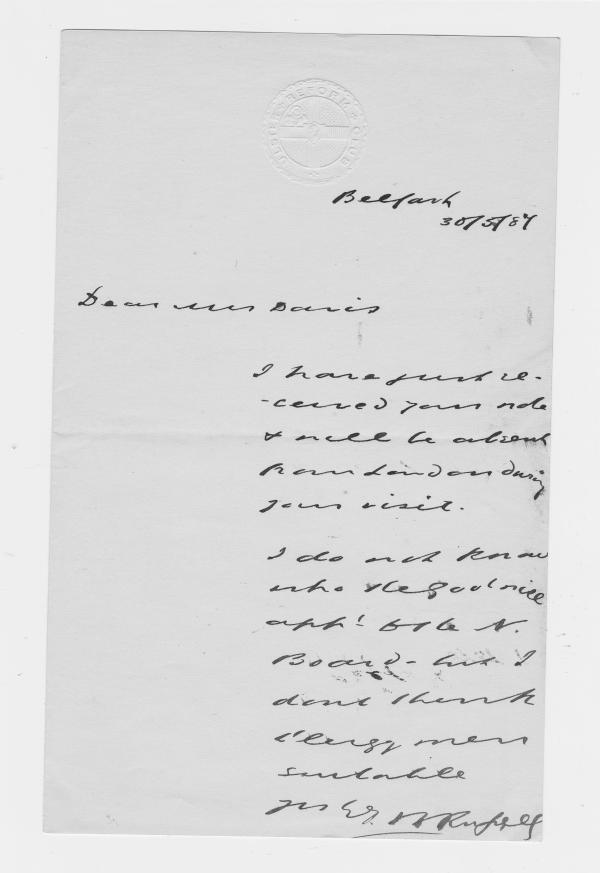 ULSTER REFORM CLUB
Belfast
30/5/87
Dear Mrs Davis
I have just re-
-ceived your note
& will be absent
from London during
your visit.
I do not know
who the Gov will
appt. to the N.
Board - but I
dont think
Clergymen
suitable
Russell